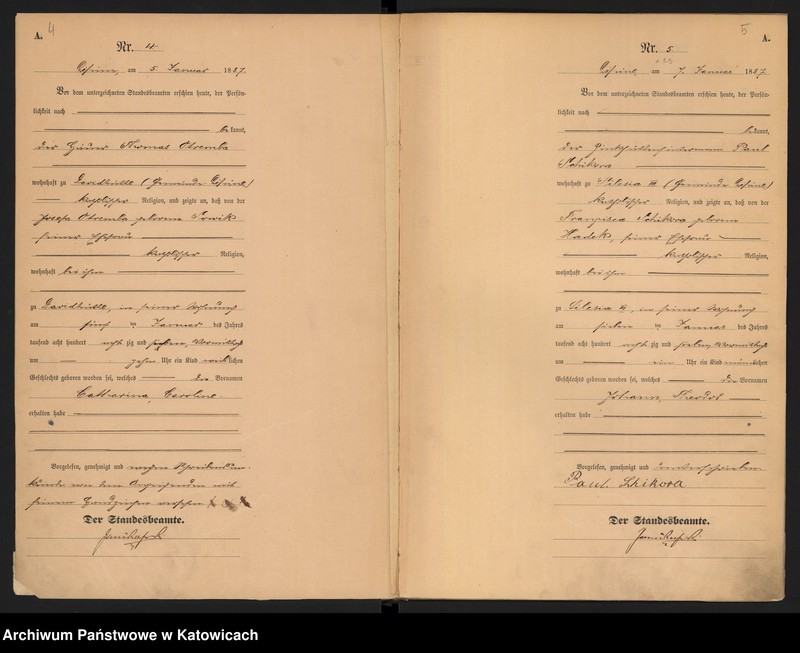 4
A.
Nr. 4.
am 5. Januar 1887.
Vor dem unterzeichneten Standesbeamten erschien heute, der Persön-
lichkeit nach
bekannt,
der Häuer Thomas Otremba
wohnhaft zu Davidhütte (Gemeinde
katholischer Religion, und zeigte an, daß von der
Josefa Otremba geborene
seiner Ehefrau
katholischer Religion,
wohnhaft bei ihm
zu Davidhütte, in seiner Wohnung
am fünf ten Januar des Jahres
tausend acht hundert acht zig und sieben, Vormittags
um zehn Uhr ein Kind weiblichen
Geschlechts geboren worden sei, welches die Vornamen
Catharina, Caroline
erhalten habe
Vorgelesen, genehmigt und wegen Schreibensun-
kunde von dem Anzeigenden mit
seinem Handzeichen versehen
Der Standesbeamte.
5
A.
Nr. 5
am 7. Januar 1887
Vor dem unterzeichneten Standesbeamten erschien heute, der Persön-
lichkeit nach
bekannt,
der Paul
Schikora
wohnhaft zu Silesia (Gemeinde
katholischer Religion, und zeigte an, daß von der
Francisca Schikora geborene
Hadek, seiner Ehefrau
katholischer Religion,
wohnhaft bei ihm
zu Silesia in seiner Wohnung
am sieben ten Januar des Jahres
tausend acht hundert acht zig und sieben, Vormittags
um ein Uhr ein Kind männlichen
Geschlechts geboren worden sei, welches die Vornamen
Johann,
erhalten habe
Vorgelesen, genehmigt und unterschrieben
Paul Schikora
Der Standesbeamte.
Archiwum Państwowe w Katowicach